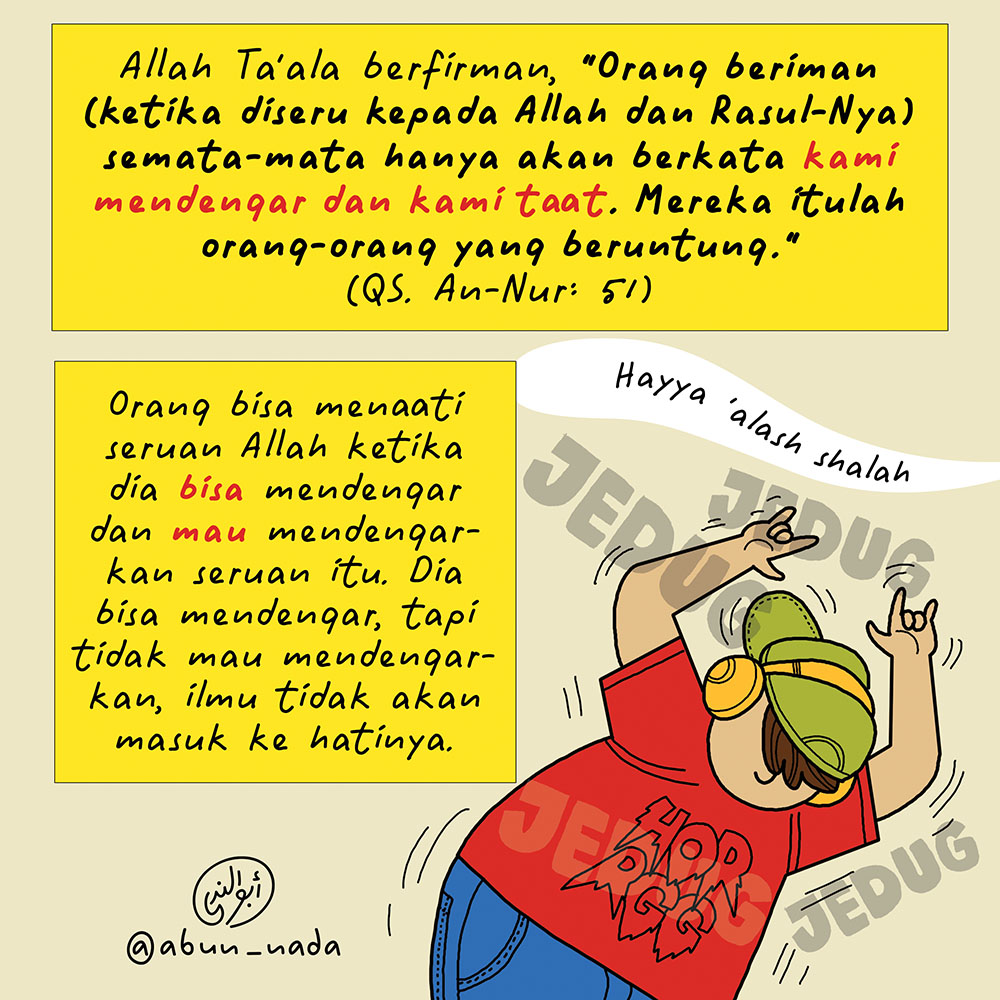 Allah Ta'ala berfirman, "Orang beriman
(ketika diseru kepada Allah dan Rasul-Nya)
semata-mata hanya akan berkata kami
mendengar dan kami taat. Mereka itulah
orang-orang yang beruntung."
(QS. An-Nur: 51)
Orang bisa menaati
seruan Allah ketika
dia bisa mendengar
dan mau mendengar-
kan seruan itu. Dia
bisa mendengar, tapi
tidak mau mendengar-
kan, ilmu tidak akan
masuk ke hatinya.
Hayya 'alash shalah
JEDUG
JEDUG
JEDUG
JEDUG
@abun_nada